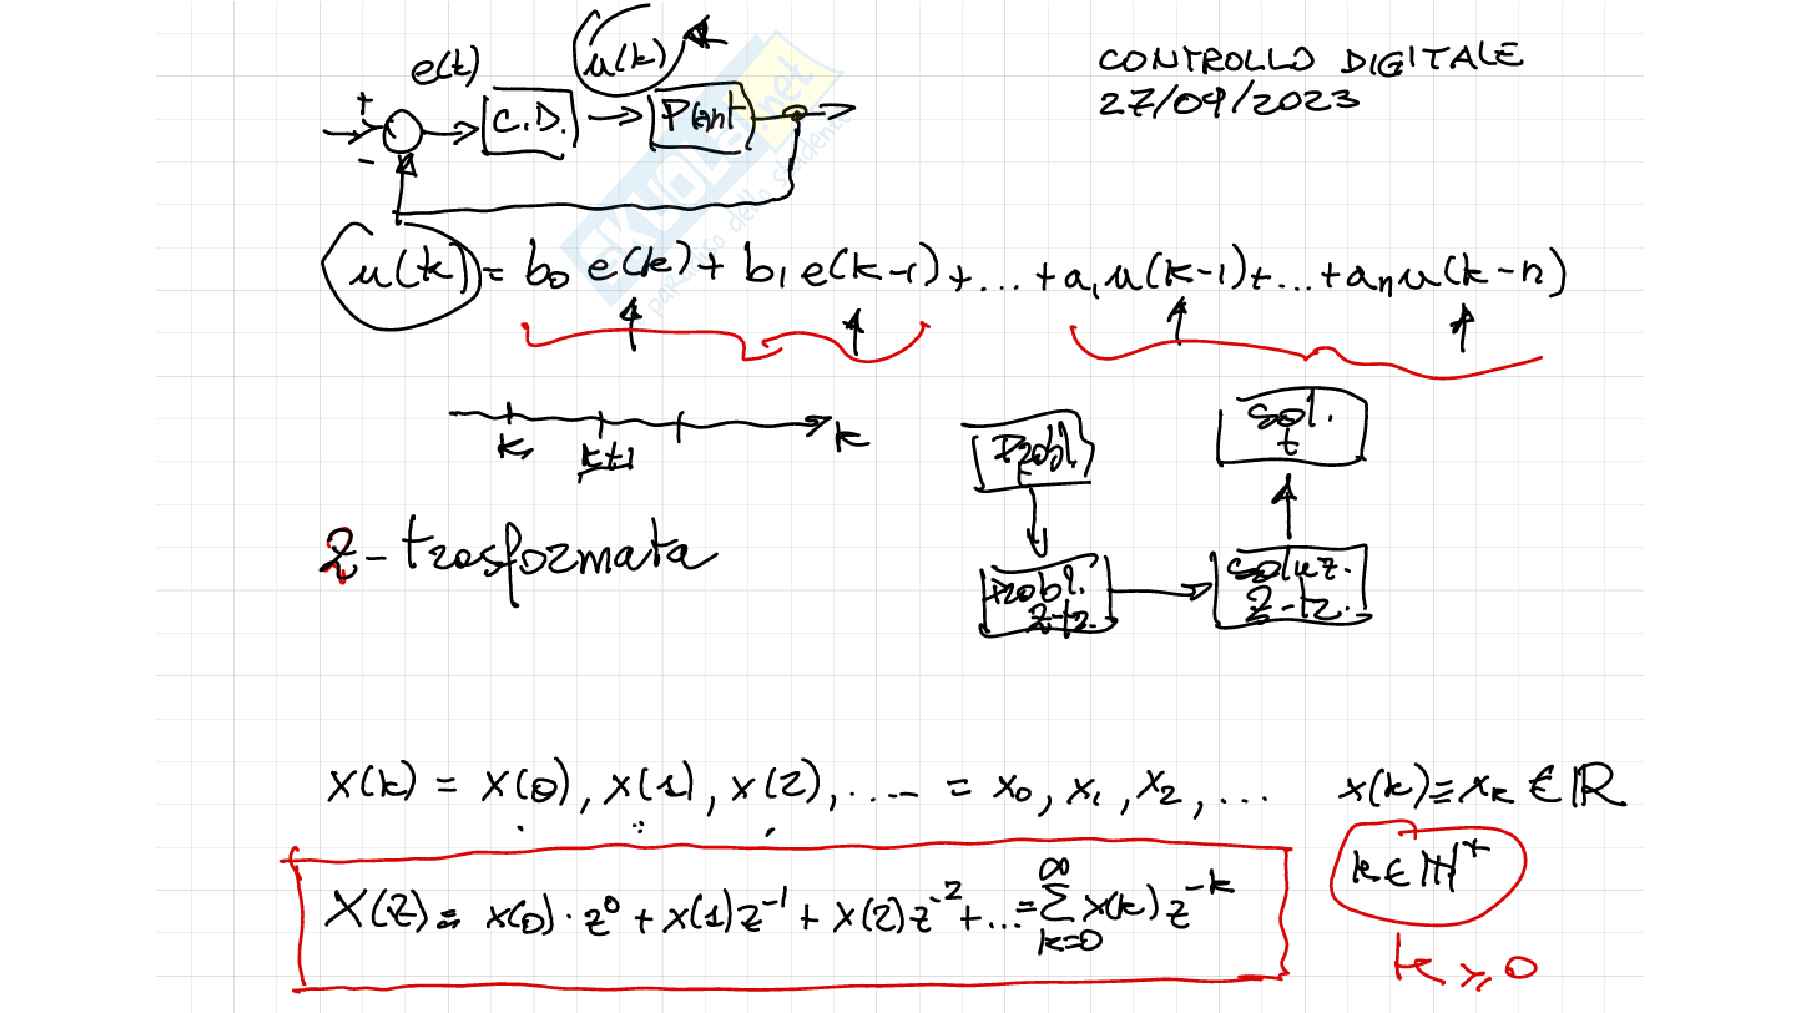 CONTROLLO DIGITALE
27/09/2023
e(t) u(k)
+ C.D. Plant
-
u(k) = b₀ e(k) + b₁ e(k-1) + ... + a₁ u(k-1) + ... + aₙ u(k-n)
k, k+1 k
Probl. sol. t
z - trasformata
Probl. z-tr. soluz. z-tr.
x(k) = x(0), x(1), x(2), .... = x₀, x₁, x₂, ... x(k) ≡ xₖ ∈ ℝ
X(z) = x(0) · z⁰ + x(1) z⁻¹ + x(2) z⁻² + ... = ∑ₖ₌₀^∞ x(k) z⁻ᵏ k ∈ ℕ⁺
k ≥ 0
SKUOLA.net